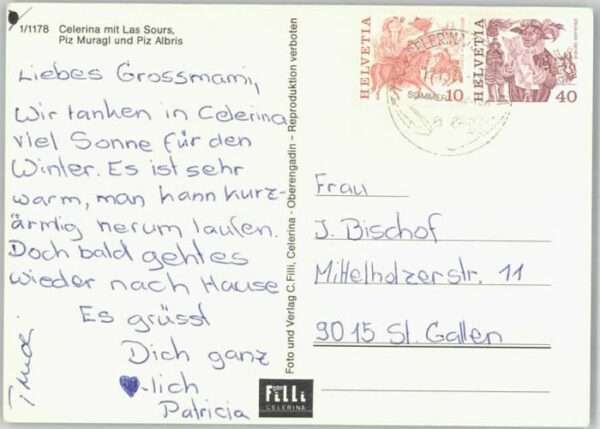 1/1178 Celerina mit Las Sours,
Piz Muragl und Piz Albris
Liebes Grossmami,
Wir tanken in Celerina
viel Sonne für den
Winter. Es ist sehr
warm, man kann kurz-
ärmlig herum laufen.
Doch bald geht es
wieder nach Hause
Es grüsst
Dich ganz
-lich
Patricia
Foto und Verlag C. Filli, Celerina - Oberengadin - Reproduktion verboten
Filli
CELERINA
CELERINA
SOMMER
HELVETIA
10
HELVETIA
40
Frau
J. Bischof
Mittelholzerstr. 11
9015 St. Gallen